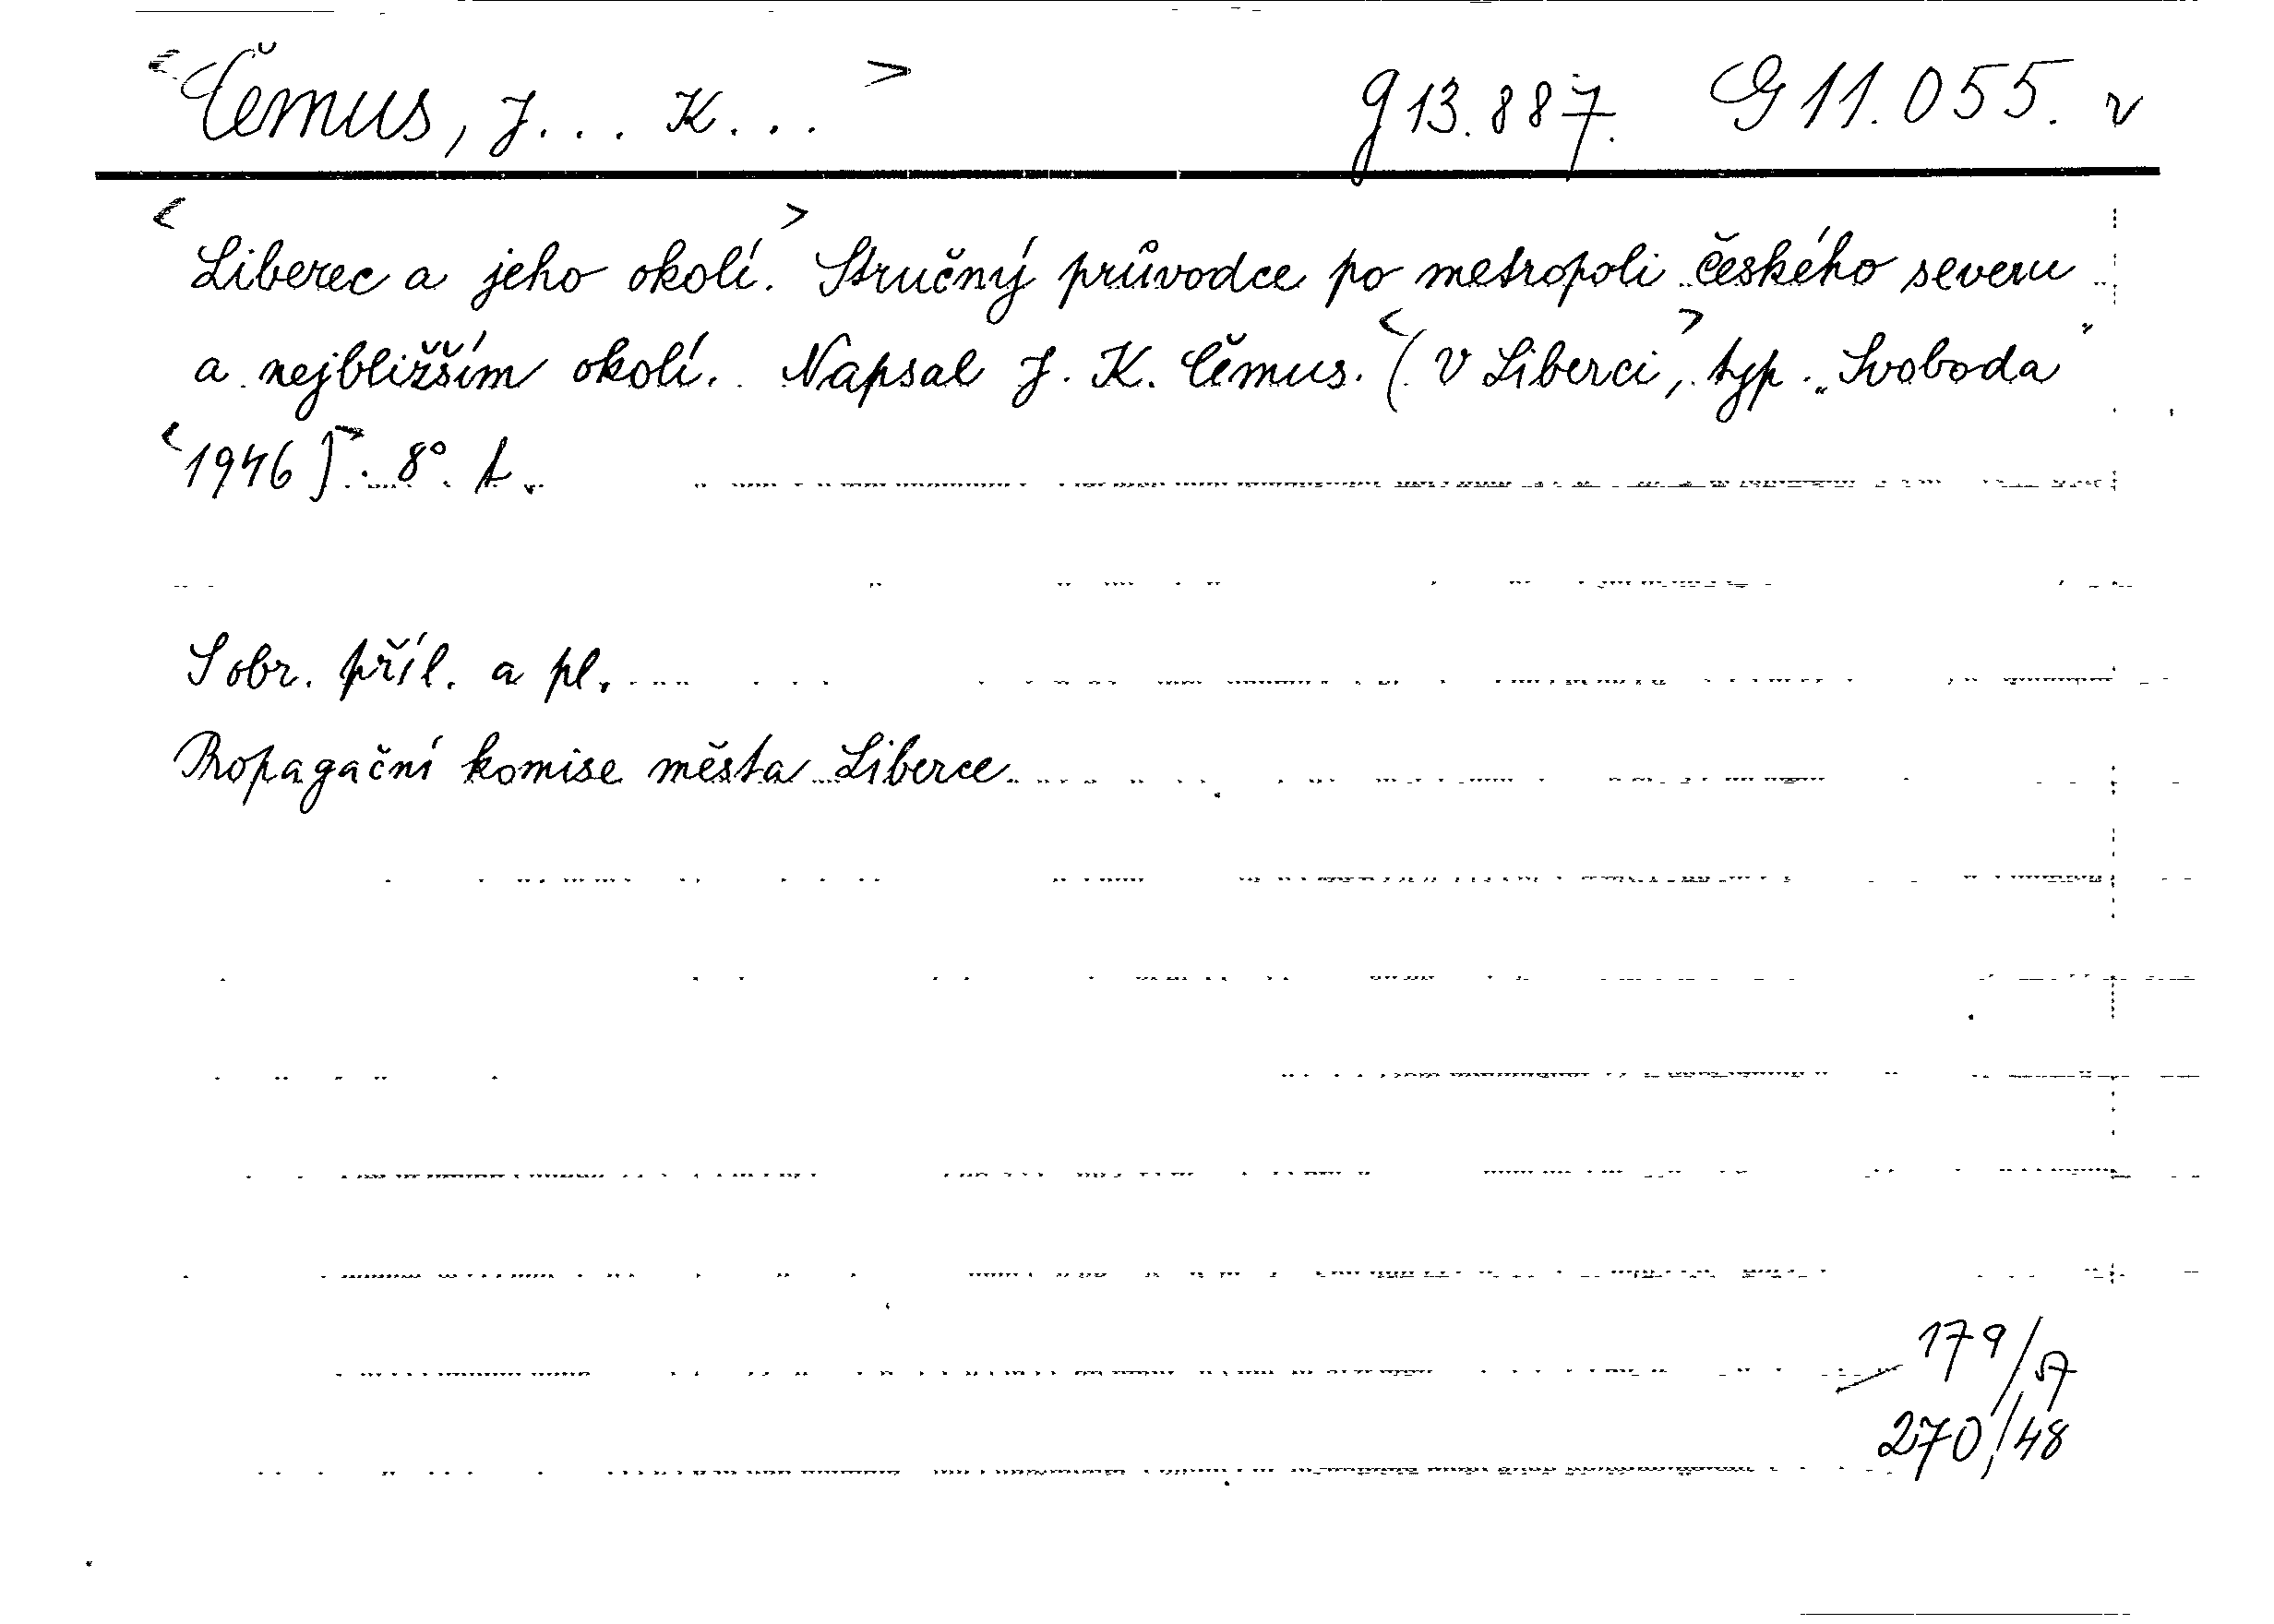 <Čemus, J... K...> g 13.887. G 11.055. v
<Liberec a jeho okolí.> Stručný průvodce po metropoli českého severu
a nejbližším okolí. Napsal J. K. Čemus. <(V Liberci,> typ. „Svoboda"
<1946)>. 8°. t.
S obr. příl. a pl.
Propagační komise města Liberce
179/57
270/48